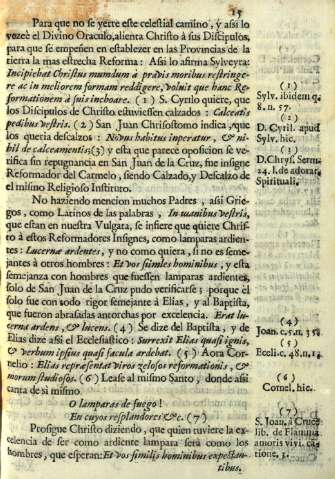 15
Para que no se yerre este celestial camino, y assi lo
vozeè el Divino Oraculo, alienta Christo à sus Discipulos,
para que se empeñen en establezer en las Provincias de la
tierra la mas estrecha Reforma: Assi lo afirma Sylveyra:
Incipiebat Christus mundum à pravis moribus restringe-
re ac in meliorem formam reddigere, voluit que hanc Re-
formationem à suis inchoare. (1) S. Cyrilo quiere, que
los Discipulos de Christo estuviessen calzados: Calceatis
pedibus vestris. (2) San Juan Chrisostomo indica, que
los queria descalzos: Nudus habitus imperatur, & ni-
bil de calceamentis,(3) y esta que parece oposicion se ve-
rifica sin repugnancia en San Juan de la Cruz, fue insigne
Reformador del Carmelo, siendo Calzado, y Descalzo de
el mismo Religioso Instituto.
No haziendo mencion muchos Padres, assi Grie-
gos, como Latinos de las palabras, In manibus vestris,
que estan en nuestra Vulgata, se infiere que quiere Chris-
to à estos Reformadores Insignes, como lamparas ardien-
tes: Lucernæ ardentes, y no como quiera, si no es seme-
jantes à otros hombres: Et vos similes hominibus, y esta
semejanza con hombres que fuessen lamparas ardientes,
solo de San Juan de la Cruz pudo verificarse; porque el
solo fue con todo rigor semejante à Elias, y al Baptista,
que fueron abrasadas antorchas por excelencia. Erat lu-
cerna ardens, & lucens. (4) Se dize del Baptista, y de
Elias dize assi el Ecclesiastico: Surrexit Elias quasi ignis,
& verbum ipsius quasi facula ardebat. (5) Aora Cor-
nelio: Elias repræsentat viros zelosos reformationis, &
morum studiosos. (6) Lease al mismo Santo, donde assi
canta de si mismo.
O lamparas de fuego!
En cuyos resplandores &c. (7)
Prosigue Christo diziendo, que quien tuviere la ex-
celencia de ser como ardiente lampara serà como los
hombres, que esperan: Et vos similis hominibus expectan-
tibus,
(1)
Sylv. ibidem q.
8. n. 57.
(2)
D. Cyril. apud
Sylv. hic.
(3)
D. Chrys. Serm.
24. l. de adorat.
Spirituali.
(4)
Joan. c. 5. n. 35.
(5)
Eccli. c. 48. n. 1.
(6)
Cornel. hic.
(7)
S. Joan. à Cruce
lib. de Flamma
amoris vivi. ca-
tione, 3.